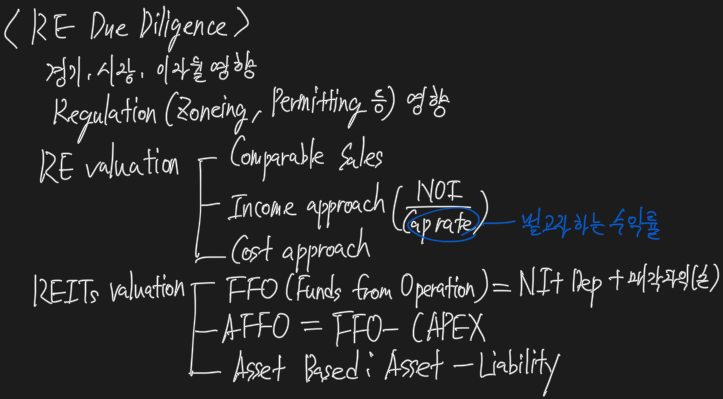 < RE Due Diligence >
경기, 시장, 이자율 영향
Regulation (Zoneing, Permitting 등) 영향
RE valuation
Comparable Sales
Income approach (NOI / Cap rate) 벌고자하는 수익률
Cost approach
REITs valuation
FFO (Funds from Operation) = NI + Dep + 매각차익(손)
AFFO = FFO - CAPEX
Asset Based : Asset - Liability